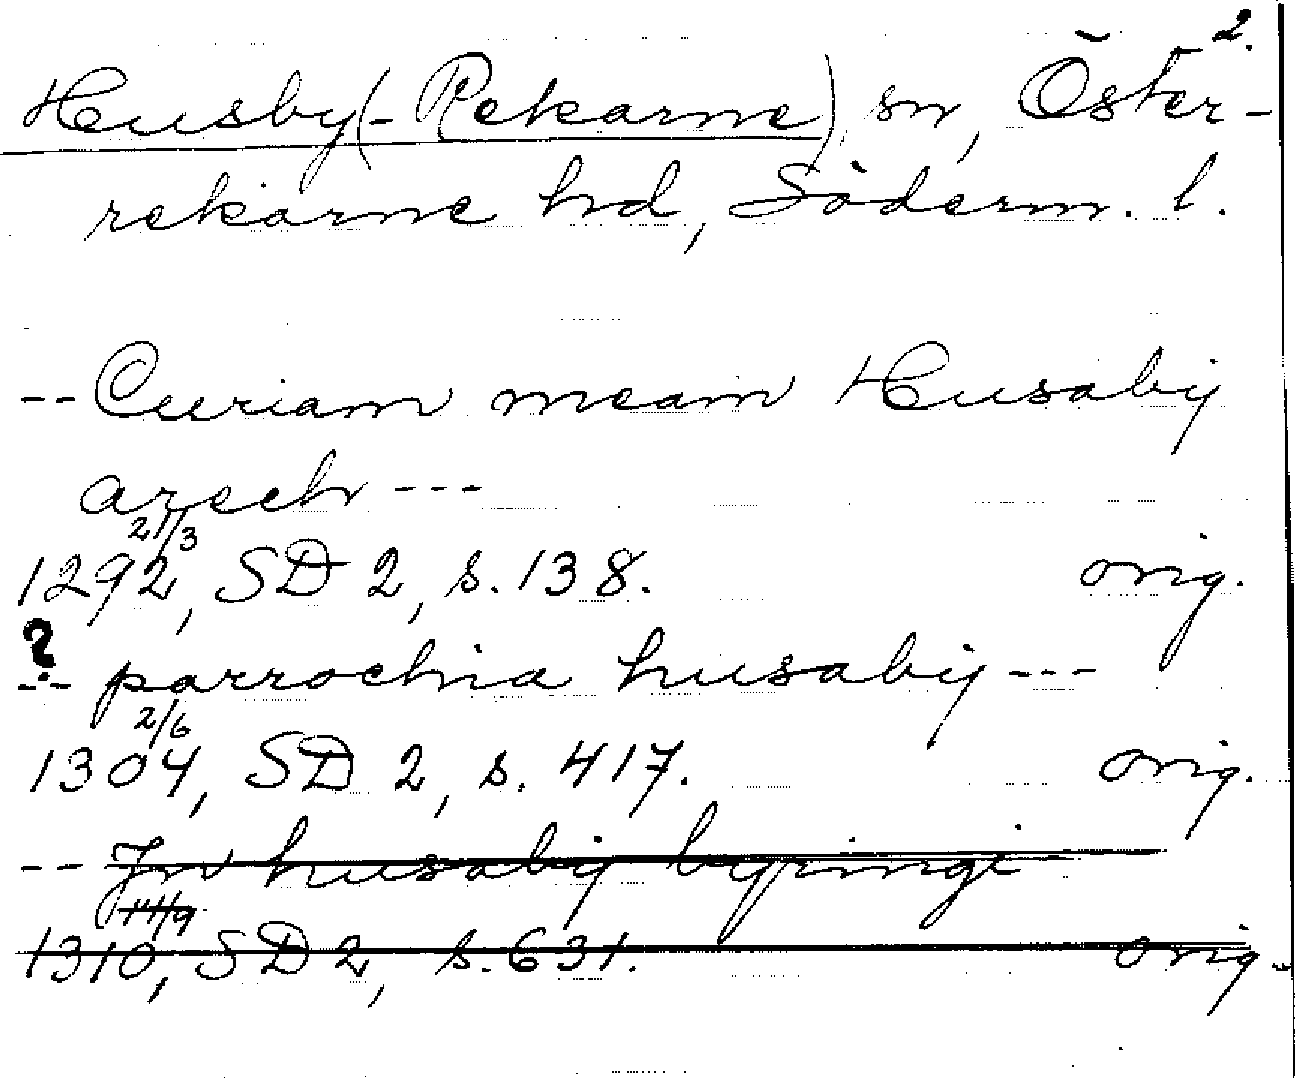 2.
Husby(-Rekarne) sn, Öster-
rekarne hd, Söderm. l.
-- Curiam meam Husaby
arsch ---
21/3
1292, SD 2, s. 138. orig.
?
-- parrochia husaby ---
2/6
1304, SD 2, s. 417. orig.
-- Jn husaby byringi
14/9
1310, SD 2, s. 631. orig.